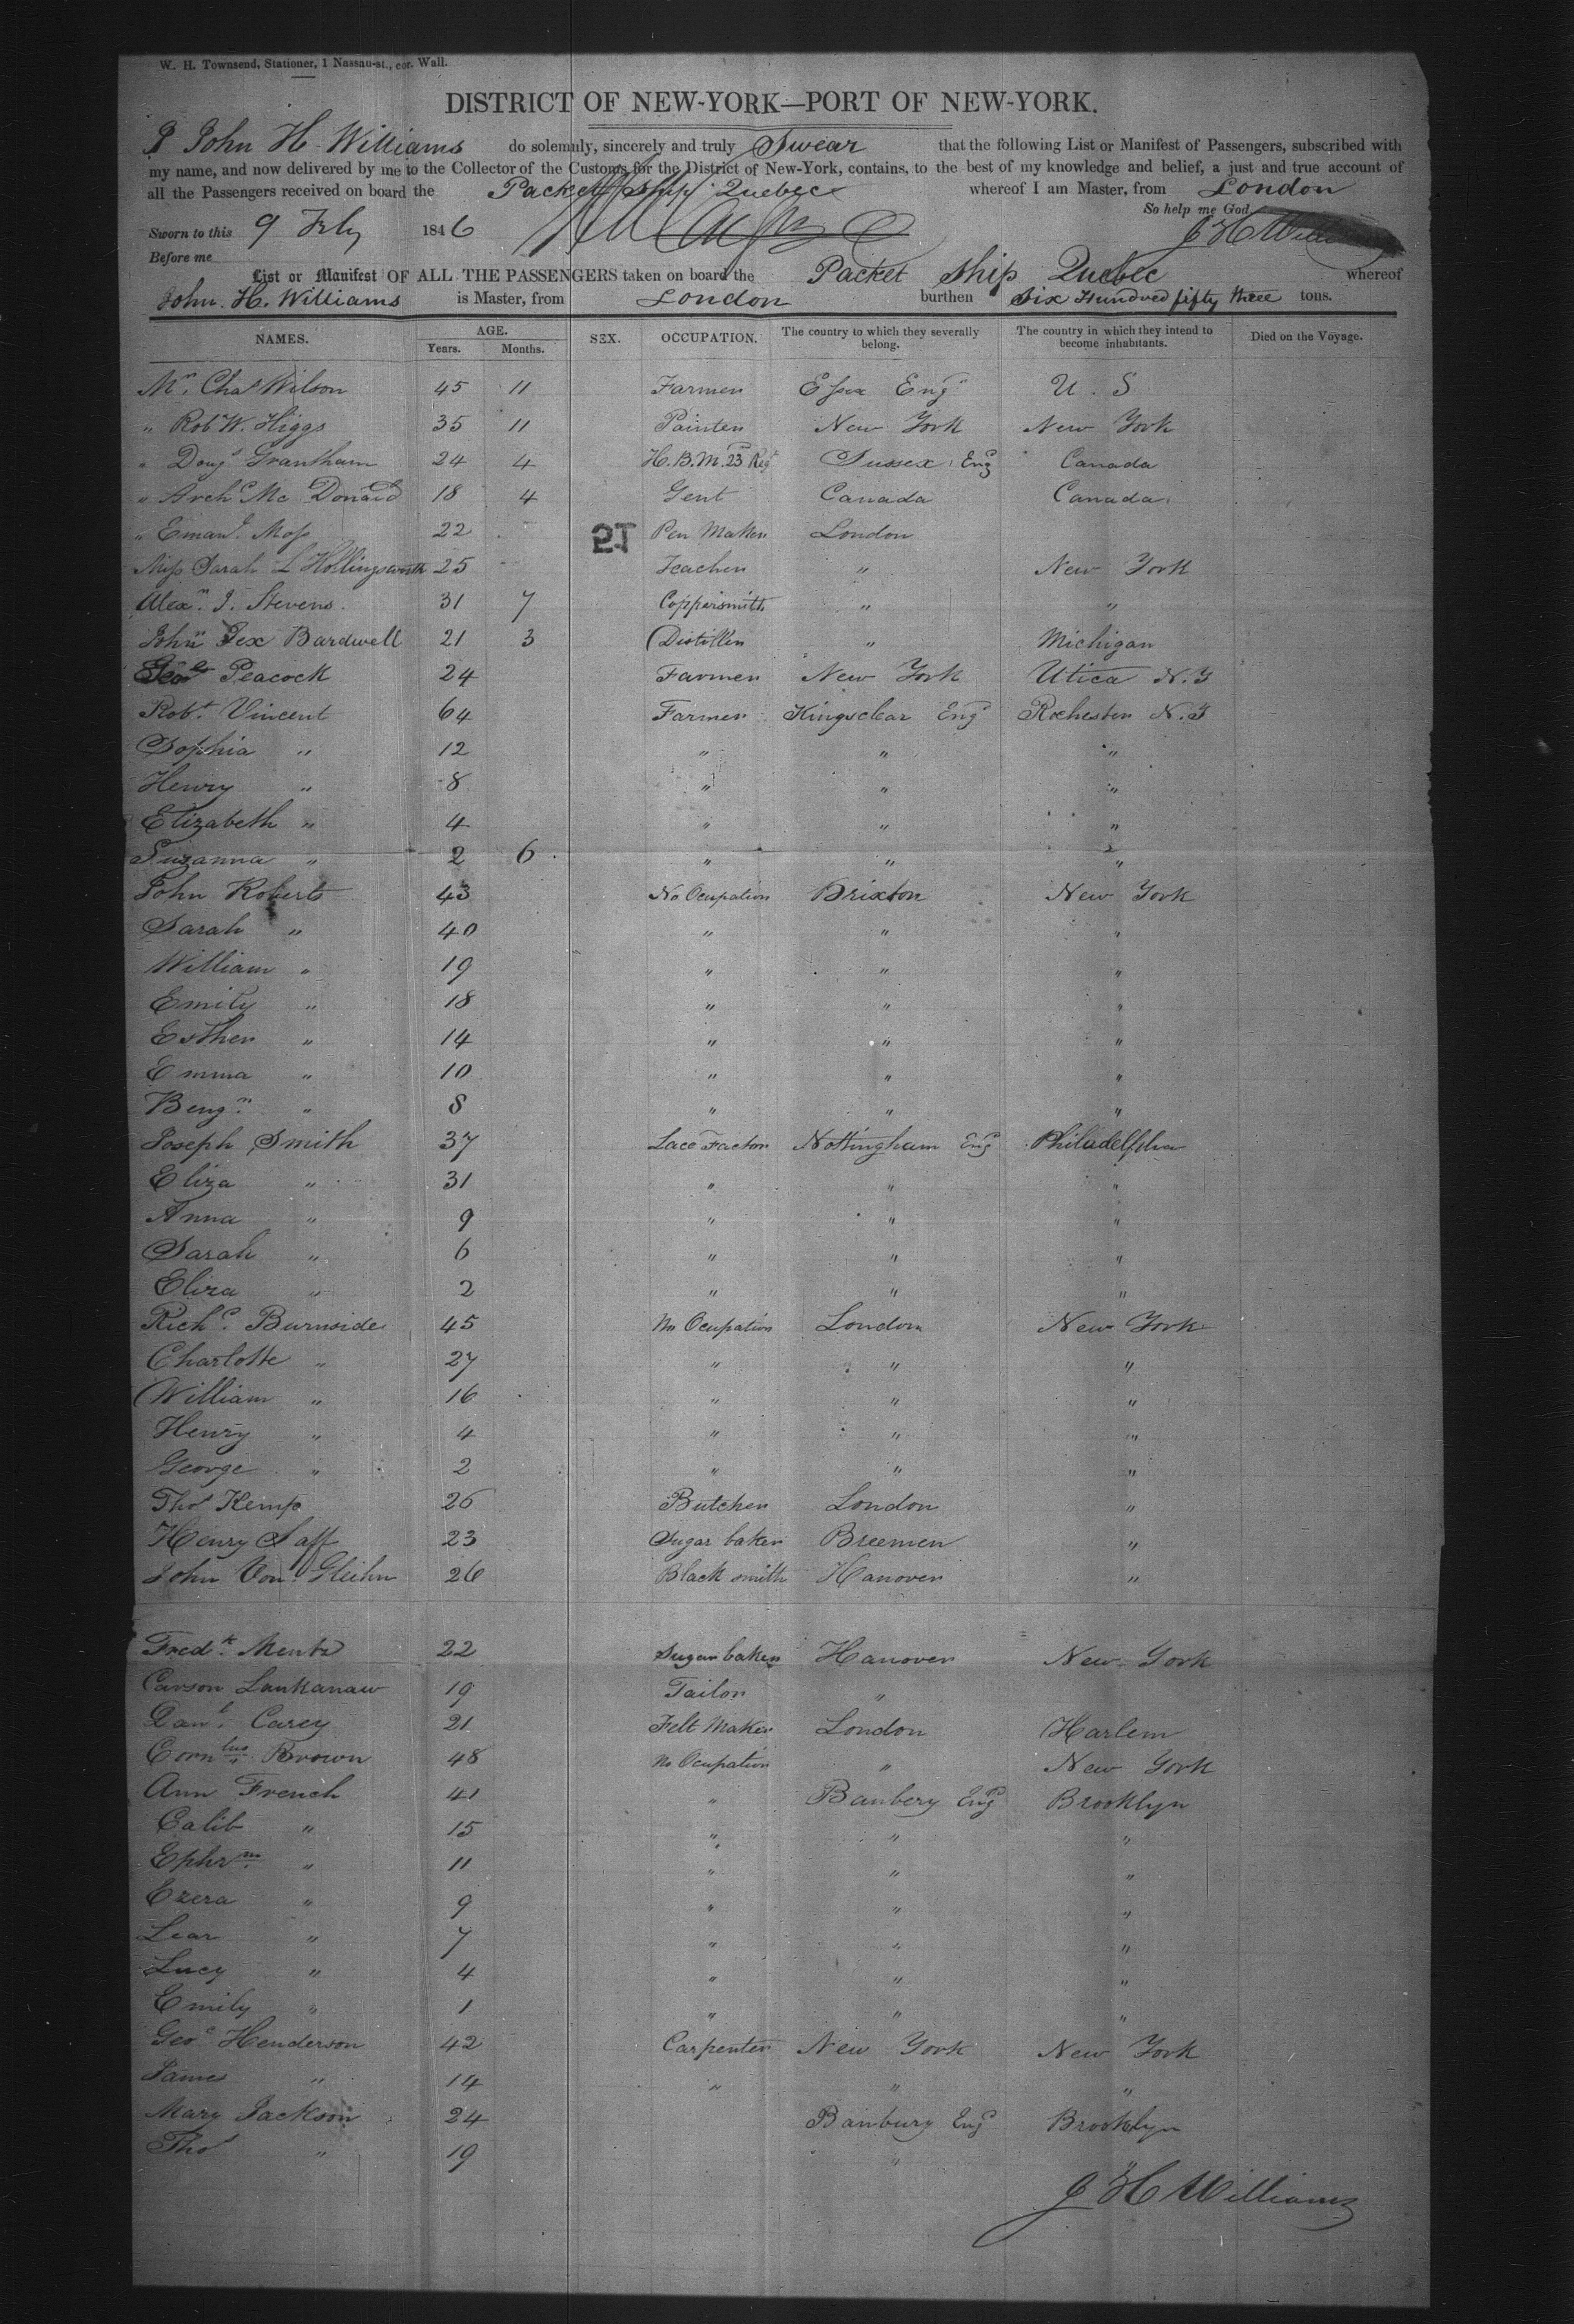 W. H. Townsend, Stationer, 1 Nassau-st., cor. Wall.
DISTRICT OF NEW-YORK—PORT OF NEW-YORK.
I John H Williams do solemnly, sincerely and truly Swear that the following List or Manifest of Passengers, subscribed with
my name, and now delivered by me to the Collector of the Customs for the District of New-York, contains, to the best of my knowledge and belief, a just and true account of
all the Passengers received on board the Packet Ship Quebec whereof I am Master, from London
So help me God
Sworn to this 9 July 1846 J H Williams
Before me
List or Manifest OF ALL THE PASSENGERS taken on board the Packet Ship Quebec whereof
John. H. Williams is Master, from London burthen Six Hundred fifty three tons.
NAMES. AGE. Years. Months. SEX. OCCUPATION. The country to which they severally belong. The country in which they intend to become inhabitants. Died on the Voyage.
Mr. Chas Wilson 45 11 Farmer Essex Engd U. S
" Robt W. Higgs 35 11 Painter New York New York
" Dougs Grantham 24 4 H. B. M. 23 Regt Sussex Engd Canada
" Archd Mc Donald 18 4 Gent Canada Canada
" Emanl. Moss 22 Pen Maker London
Miss Sarah L Hollingsworth 25 Teacher " New York
Alexr. J. Stevens. 31 7 Coppersmith " "
John Tex Bardwell 21 3 Distiller " Michigan
Geo Peacock 24 Farmer New York Utica N.Y
Robt. Vincent 64 Farmer Kingsclear Engd Rochester N.Y
Sophia " 12 " " "
Henry " 8 " " "
Elizabeth " 4 " " "
Suzanna " 2 6 " " "
John Roberts 43 No Ocupation Brixton New York
Sarah " 40 " " "
William " 19 " " "
Emily " 18 " " "
Esther " 14 " " "
Emma " 10 " " "
Bengn. " 8 " " "
Joseph Smith 37 Lace Factor Nottingham Engd Philadelphia
Eliza " 31 " " "
Anna " 9 " " "
Sarah " 6 " " "
Eliza " 2 " " "
Richd. Burnside 45 No Ocupation London New York
Charlotte " 27 " " "
William " 16 " " "
Henry " 4 " " "
George " 2 " " "
Thos Kemp 26 Butcher London "
Henry Saff 23 Sugar baker Breemen "
John Von. Gleihn 26 Black smith Hanover "
Fredk. Mentz 22 Sugar baker Hanover New York
Carson Lunkanaw 19 Tailor "
Danl. Carey 21 Felt Maker London Harlem
Cornlus Brown 48 No Ocupation " New York
Ann French 41 " Banbery Engd Brooklyn
Calib " 15 " " "
Ephrm. " 11 " " "
Ezera " 9 " " "
Lear " 7 " " "
Lucy " 4 " " "
Emily " 1 " " "
Geoe Henderson 42 Carpenter New York New York
James " 14 " " "
Mary Jackson 24 Banbury Engd Brooklyn
Thos " 19 " "
J H Williams